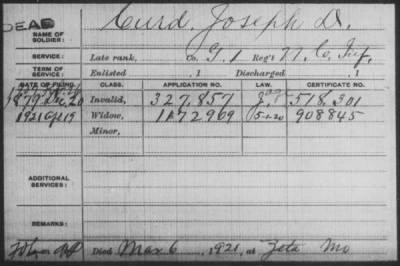 DEAD
Curd, Joseph D.
NAME OF SOLDIER:
SERVICE: Late rank, Co. G. 1 Reg't N. C. Inf.
TERM OF SERVICE: Enlisted , 1 Discharged , 1
DATE OF FILING. CLASS. APPLICATION NO. LAW. CERTIFICATE NO.
1879 Dec. 20 Invalid, 327,857 518,301
1921 Apl 19 Widow, 1172969 5-1-20 908845
Minor,
ADDITIONAL SERVICES:
REMARKS:
Died Mar 6, 1921, at Zeta Mo